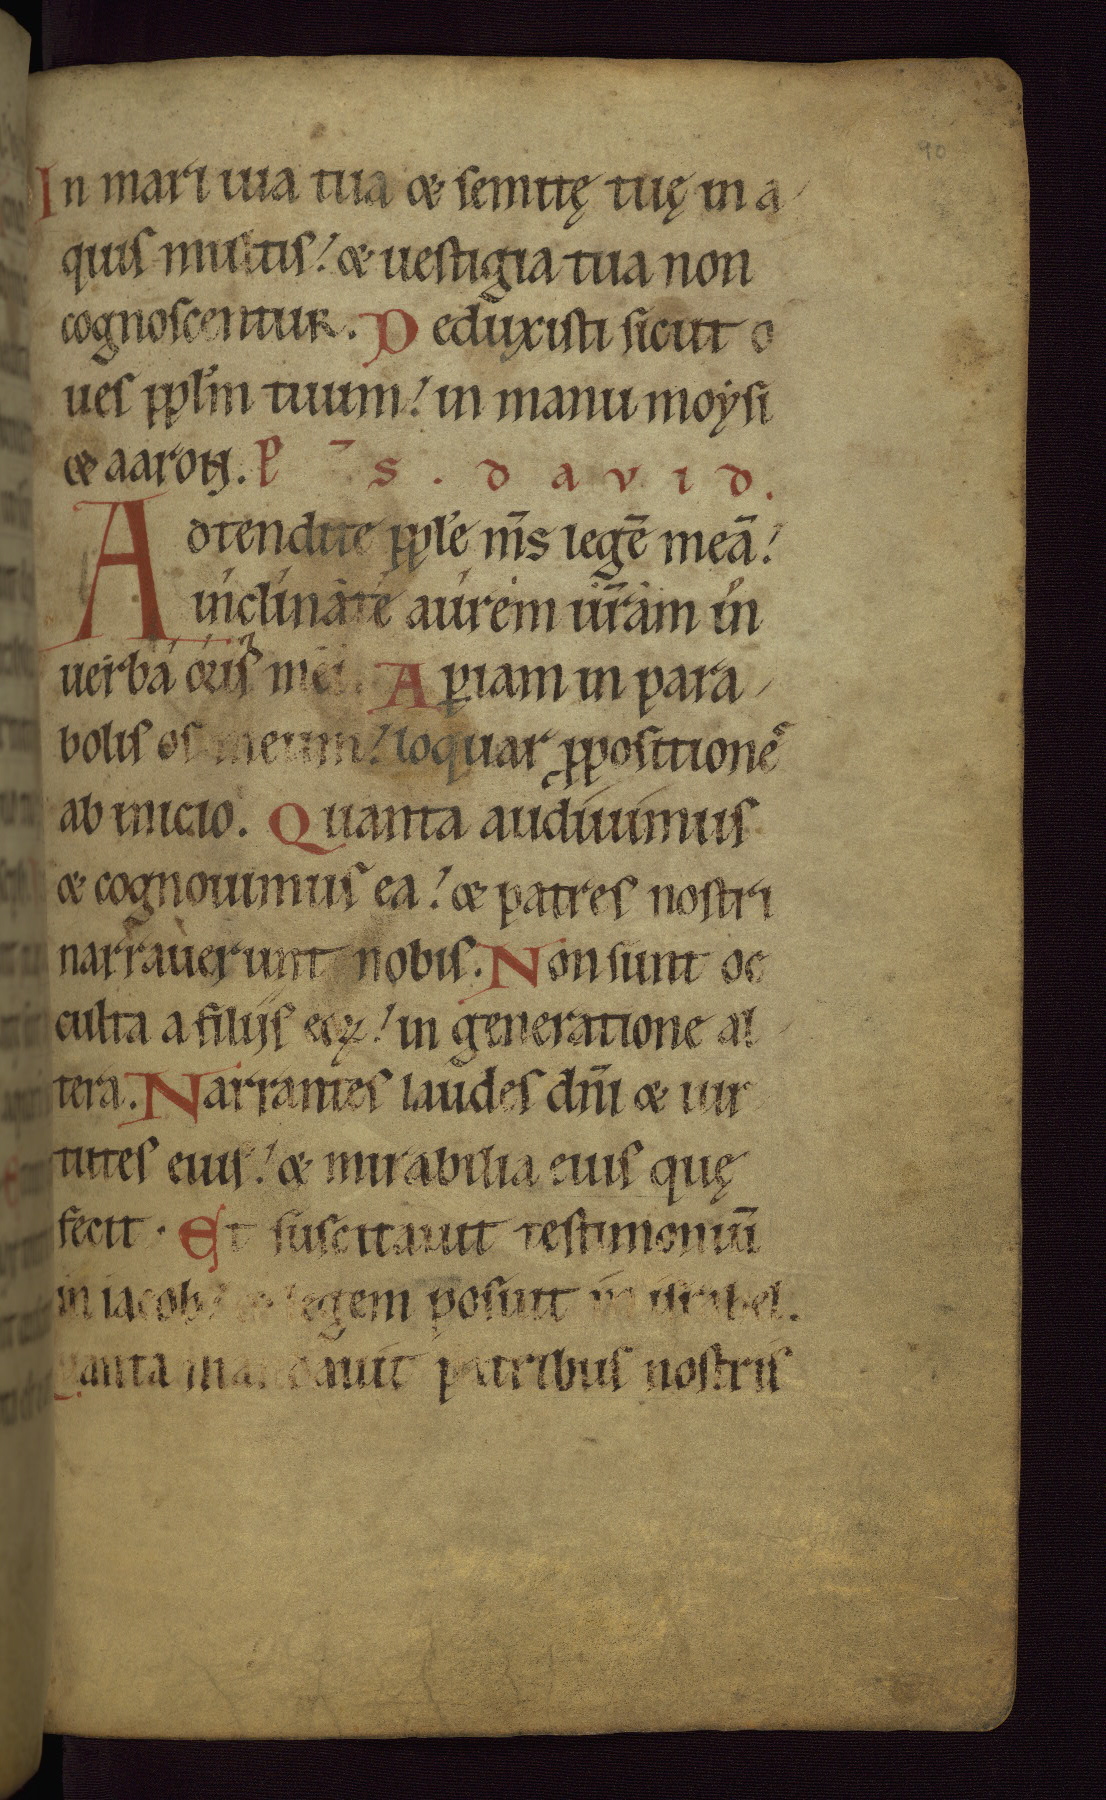 90
In mari uia tua & semitę tuę in a
quis multis! & uestigia tua non
cognoscentur. Deduxisti sicut o
ues pplm̄ tuum! in manu moẏsi
& aaron. P ̄ s. d a v i d.
Adtendite pple m̄s legē meā!
inclinate aurem ur̄am in
uerba oris mei. Apiam in para
bolis os meum! loquar ppositionē
ab inicio. Quanta audiuimus
& cognouimus ea! & patres nostri
narrauerunt nobis. Non sunt oc
culta a filiis eoꝝ! in generatione al
tera. Narrantes laudes dn̄i & uir
tutes eius! & mirabilia eius quę
fecit. Et suscitauit testimoniū
in iacob & legem posuit in israhel.
Quanta mandauit patribus nostris